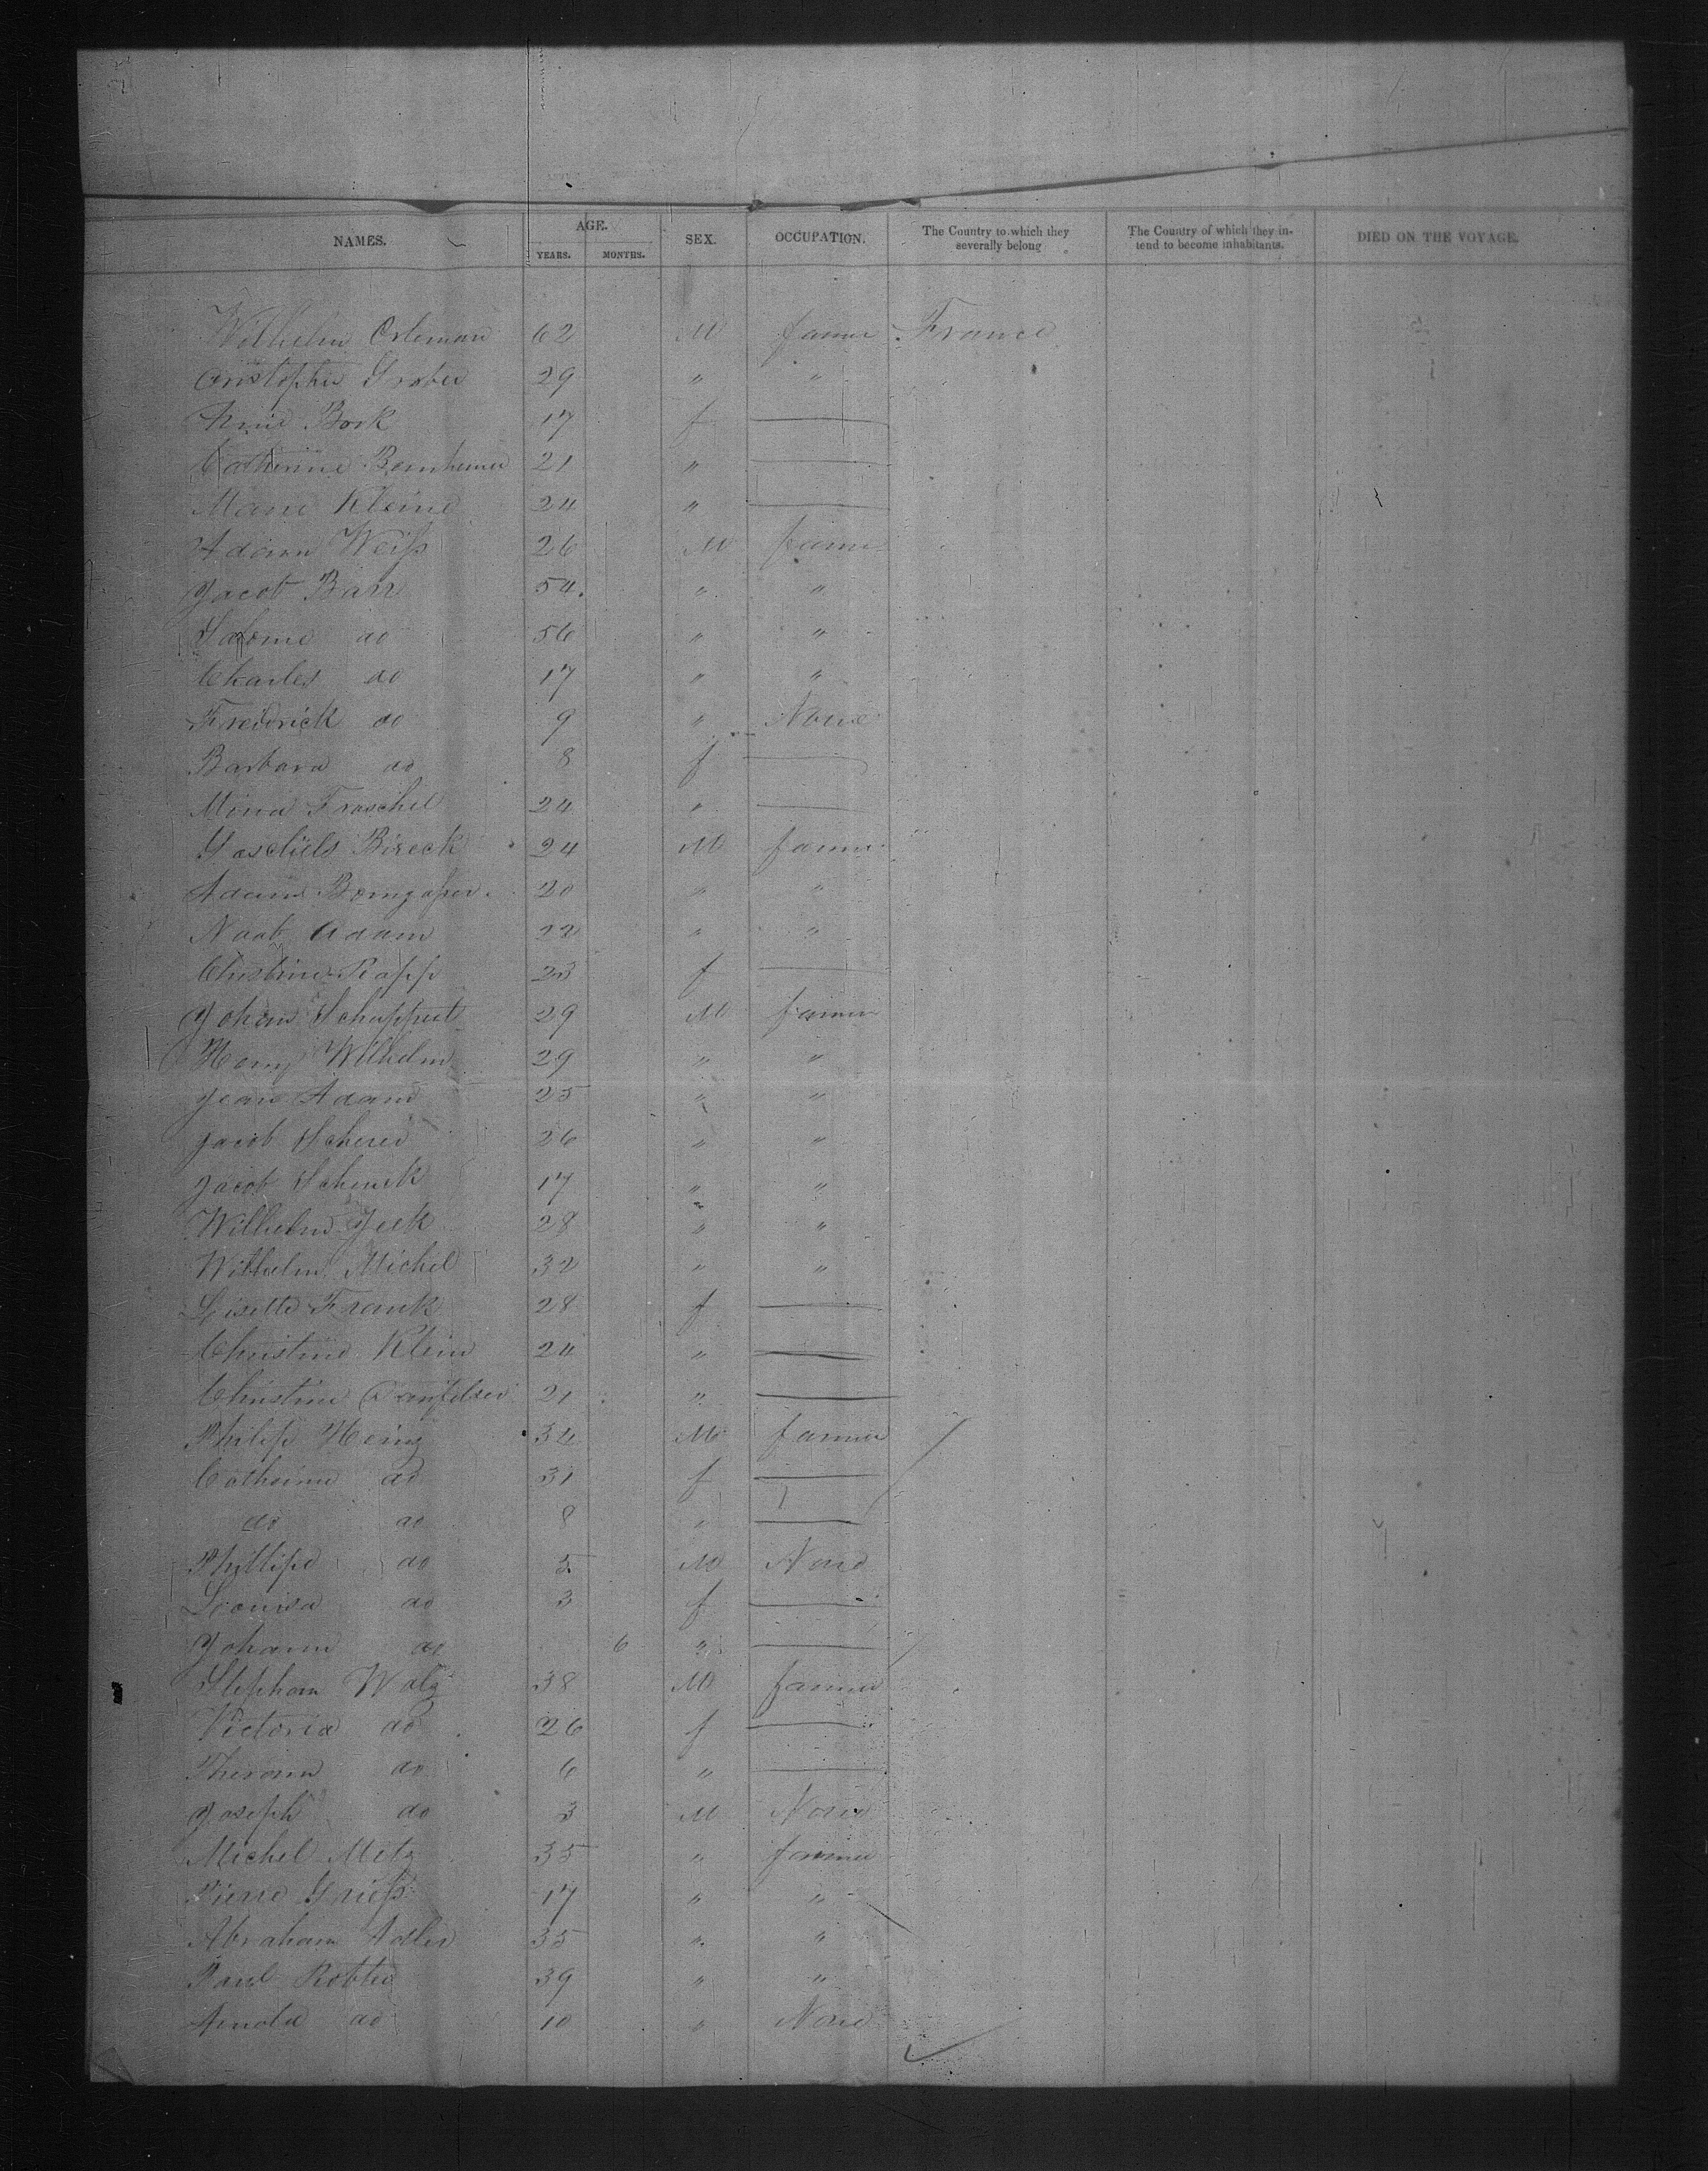 NAMES. AGE. SEX. OCCUPATION. The Country to which they severally belong The Country of which they intend to become inhabitants. DIED ON THE VOYAGE.
YEARS. MONTHS.
Wilhelm Orleman 62 M farmer France
Cristopher Graber 29 " "
Bork 17 f
Catherine Bernheimer 21 "
Marie Kleine 24 "
Adam Weiss 26 M farmer
Jacob Barr 54 " "
Salome do 56 " "
Charles do 17 " "
Frederick do 9 " None
Barbara do 8 f
Mina Fraschel 24 "
Bireck 24 M farmer
Adam 20 " "
Adam 22 " "
Christine Rapp 23 f
Johann Schuppert 29 M farmer
Henry Wilhelm 29 " "
Jean Adam 25 " "
Jacob Scherer 26 " "
Jacob Schenck 17 " "
Wilhelm Jeck 28 " "
Wilhelm Michel 32 " "
Lisette Frank 28 f
Christine Klein 24 "
Christine 21 "
Philip Heinz 34 M farmer
Catharina do 31 f
do do 8 "
Phillipe do 5 M None
Loouisa do 3 f
Johann do 6 "
Stephan Walz 38 M farmer
Victoria do 26 f
do 6 "
Joseph do 3 M None
Michel Metz 35 " farmer
Pierre Griess 17 " "
Abraham Adler 35 " "
Paul Robter 39 " "
Arnold do 10 " None